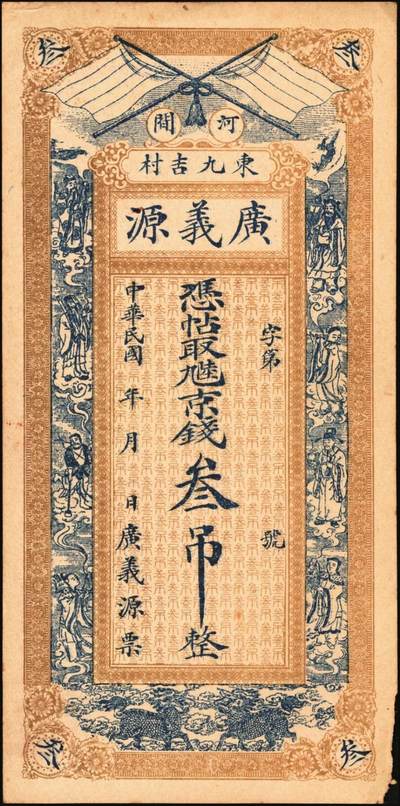 叁
叁
河間
東九吉村
廣義源
字第 號
憑帖取京錢叁吊整
中華民國 年 月 日 廣義源票
叁
叁